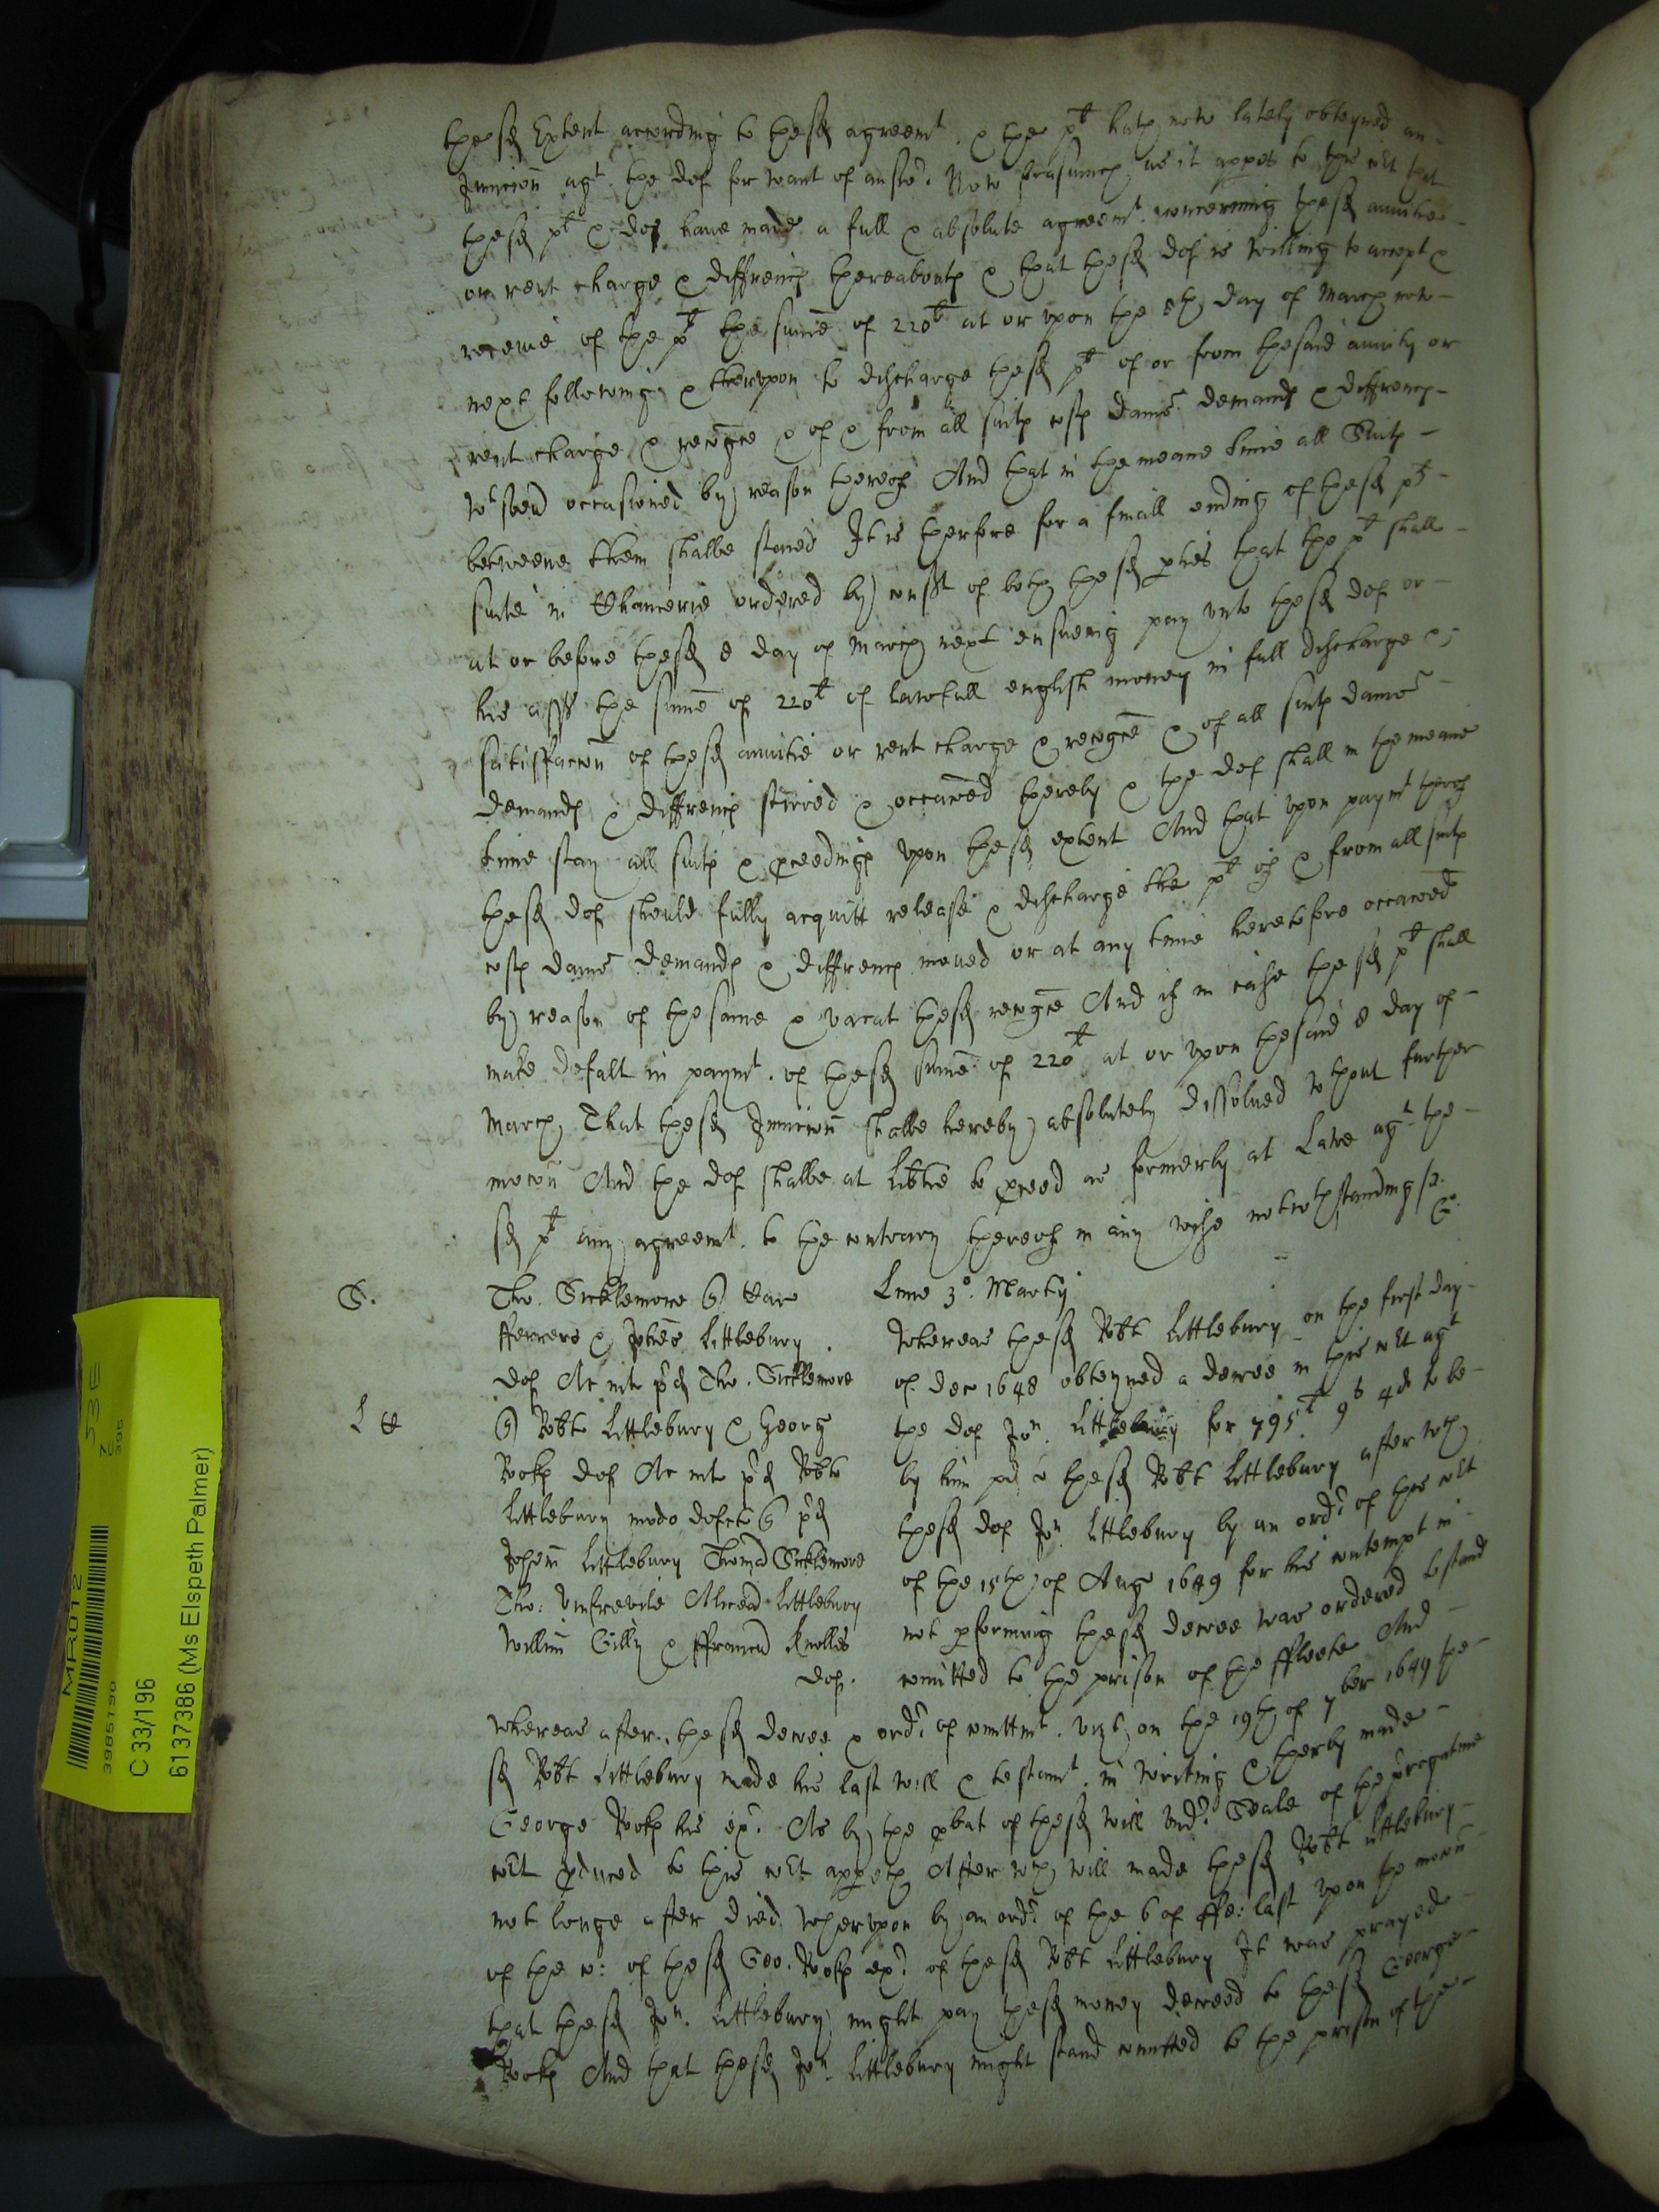 the sd Extent according to the sd agreemt. & the plt hath now lately obteyned an
Iniuncon agt the def for want of answr. Now forasmuch as it appes to this cort that
the sd plt & def have made a full & absolute agreemt. concerning the sd anuitie
or rent charge & diffrences thereabouts & that the sd def is willing to accept &
receive of the plt the sume of 220l at or vpon the 8th day of March now
next following & therevpon to discharge the sd plt of or from the said anuity or
rent charge & recogce & of & from all suits costs dams demands & diffrences
wtsoever occasioned by reason thereof And that in the meane time all Suits
betweene them shalbe staied It is therfore for a finall ending of the sd plts
suite in Chancerie ordered by consent of both the sd pties that the plt shall
at or before the sd 8 day of March next ensueing pay vnto the sd def or
his asss the sume of 220l of lawfull english money in full discharge &
satisffacon of the sd anuitie or rent charge & recogce & of all suits dams
demands & diffrences stirred & occaconed thereby & the def shall in the meane
time stay all suits & pceedings vpon the sd extent And that vpon paymt therof
the sd def should fully acquitt release & discharge the plt of & from all suits
costs dams demands & diffrences moued or at any time heretofore occaconed
by reason of the same & vacat the sd recogce And if in case the sd plt shall
make defalt in paymt. of the sd sume of 220l at or vpon the said 8 day of
March That the sd Iniuncon shalbe hereby absolutely dissolued wthout further
mocon And the def shalbe at libtie to pceed as formerly at Lawe agt the
sd plt any agreemt. to the contrary thereof in any wise notwthstanding
S.
Tho. Sicklemore
Ferrers & Johes Littlebury
def Ac int pd Tho. Sicklemore
L
Robte Littlebury & Georg
Rooks def Ac int pd Robte
Littlebury modo defcte pd
Johem Littlebury Thomam Sicklemore
Tho: Vmfrevile Littlebury
Willim Gilly & ffrancm Knolles
def.
Lune 3o. Martij
Whereas the sd Robt Littlebury on the first day
of Dec 1648 obteyned a decree in this cort agt
the def Jon. Littlebury for 795l 9s 4d to be
by him pd to the sd Robt Littlebury after wch
the sd def Jon Littlebury by an ordr of this cort
of the 15th of Aug 1649 for his contempt in
not pforming the sd decree was ordered to stand
comitted to the prison of the ffleete And
whereas after the sd decree & ordr of comittmt. vizt on the 19th of 7ber 1649 the
sd Robt Littlebury made his last will & testamt. in writing & therby made
George Rooks his exr. As by the pbat of the sd will vndr Seale of the prrogatiue
cort pduced to this cort appeth After wch will made the sd Robt Littlebury
not longe after died Wherevpon by an ordr of the 6 of ffe: last vpon the mocon
of the co: of the sd Geo. Rooks exr of the sd Robt Littlebury It was prayed
that the sd Jon. Littlebury might pay the sd money decreed to the sd George
Rooks And that the sd Jon. Littlebury might stand comitted to the prison of the
MR012
3985190
C 33/196
6137386 (Ms Elspeth Palmer)
53E